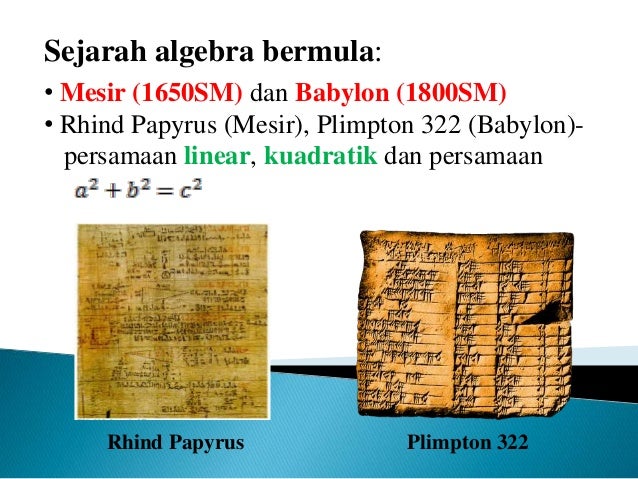 Sejarah algebra bermula:
• Mesir (1650SM) dan Babylon (1800SM)
• Rhind Papyrus (Mesir), Plimpton 322 (Babylon)-
persamaan linear, kuadratik dan persamaan
a² + b² = c²
Rhind Papyrus
Plimpton 322